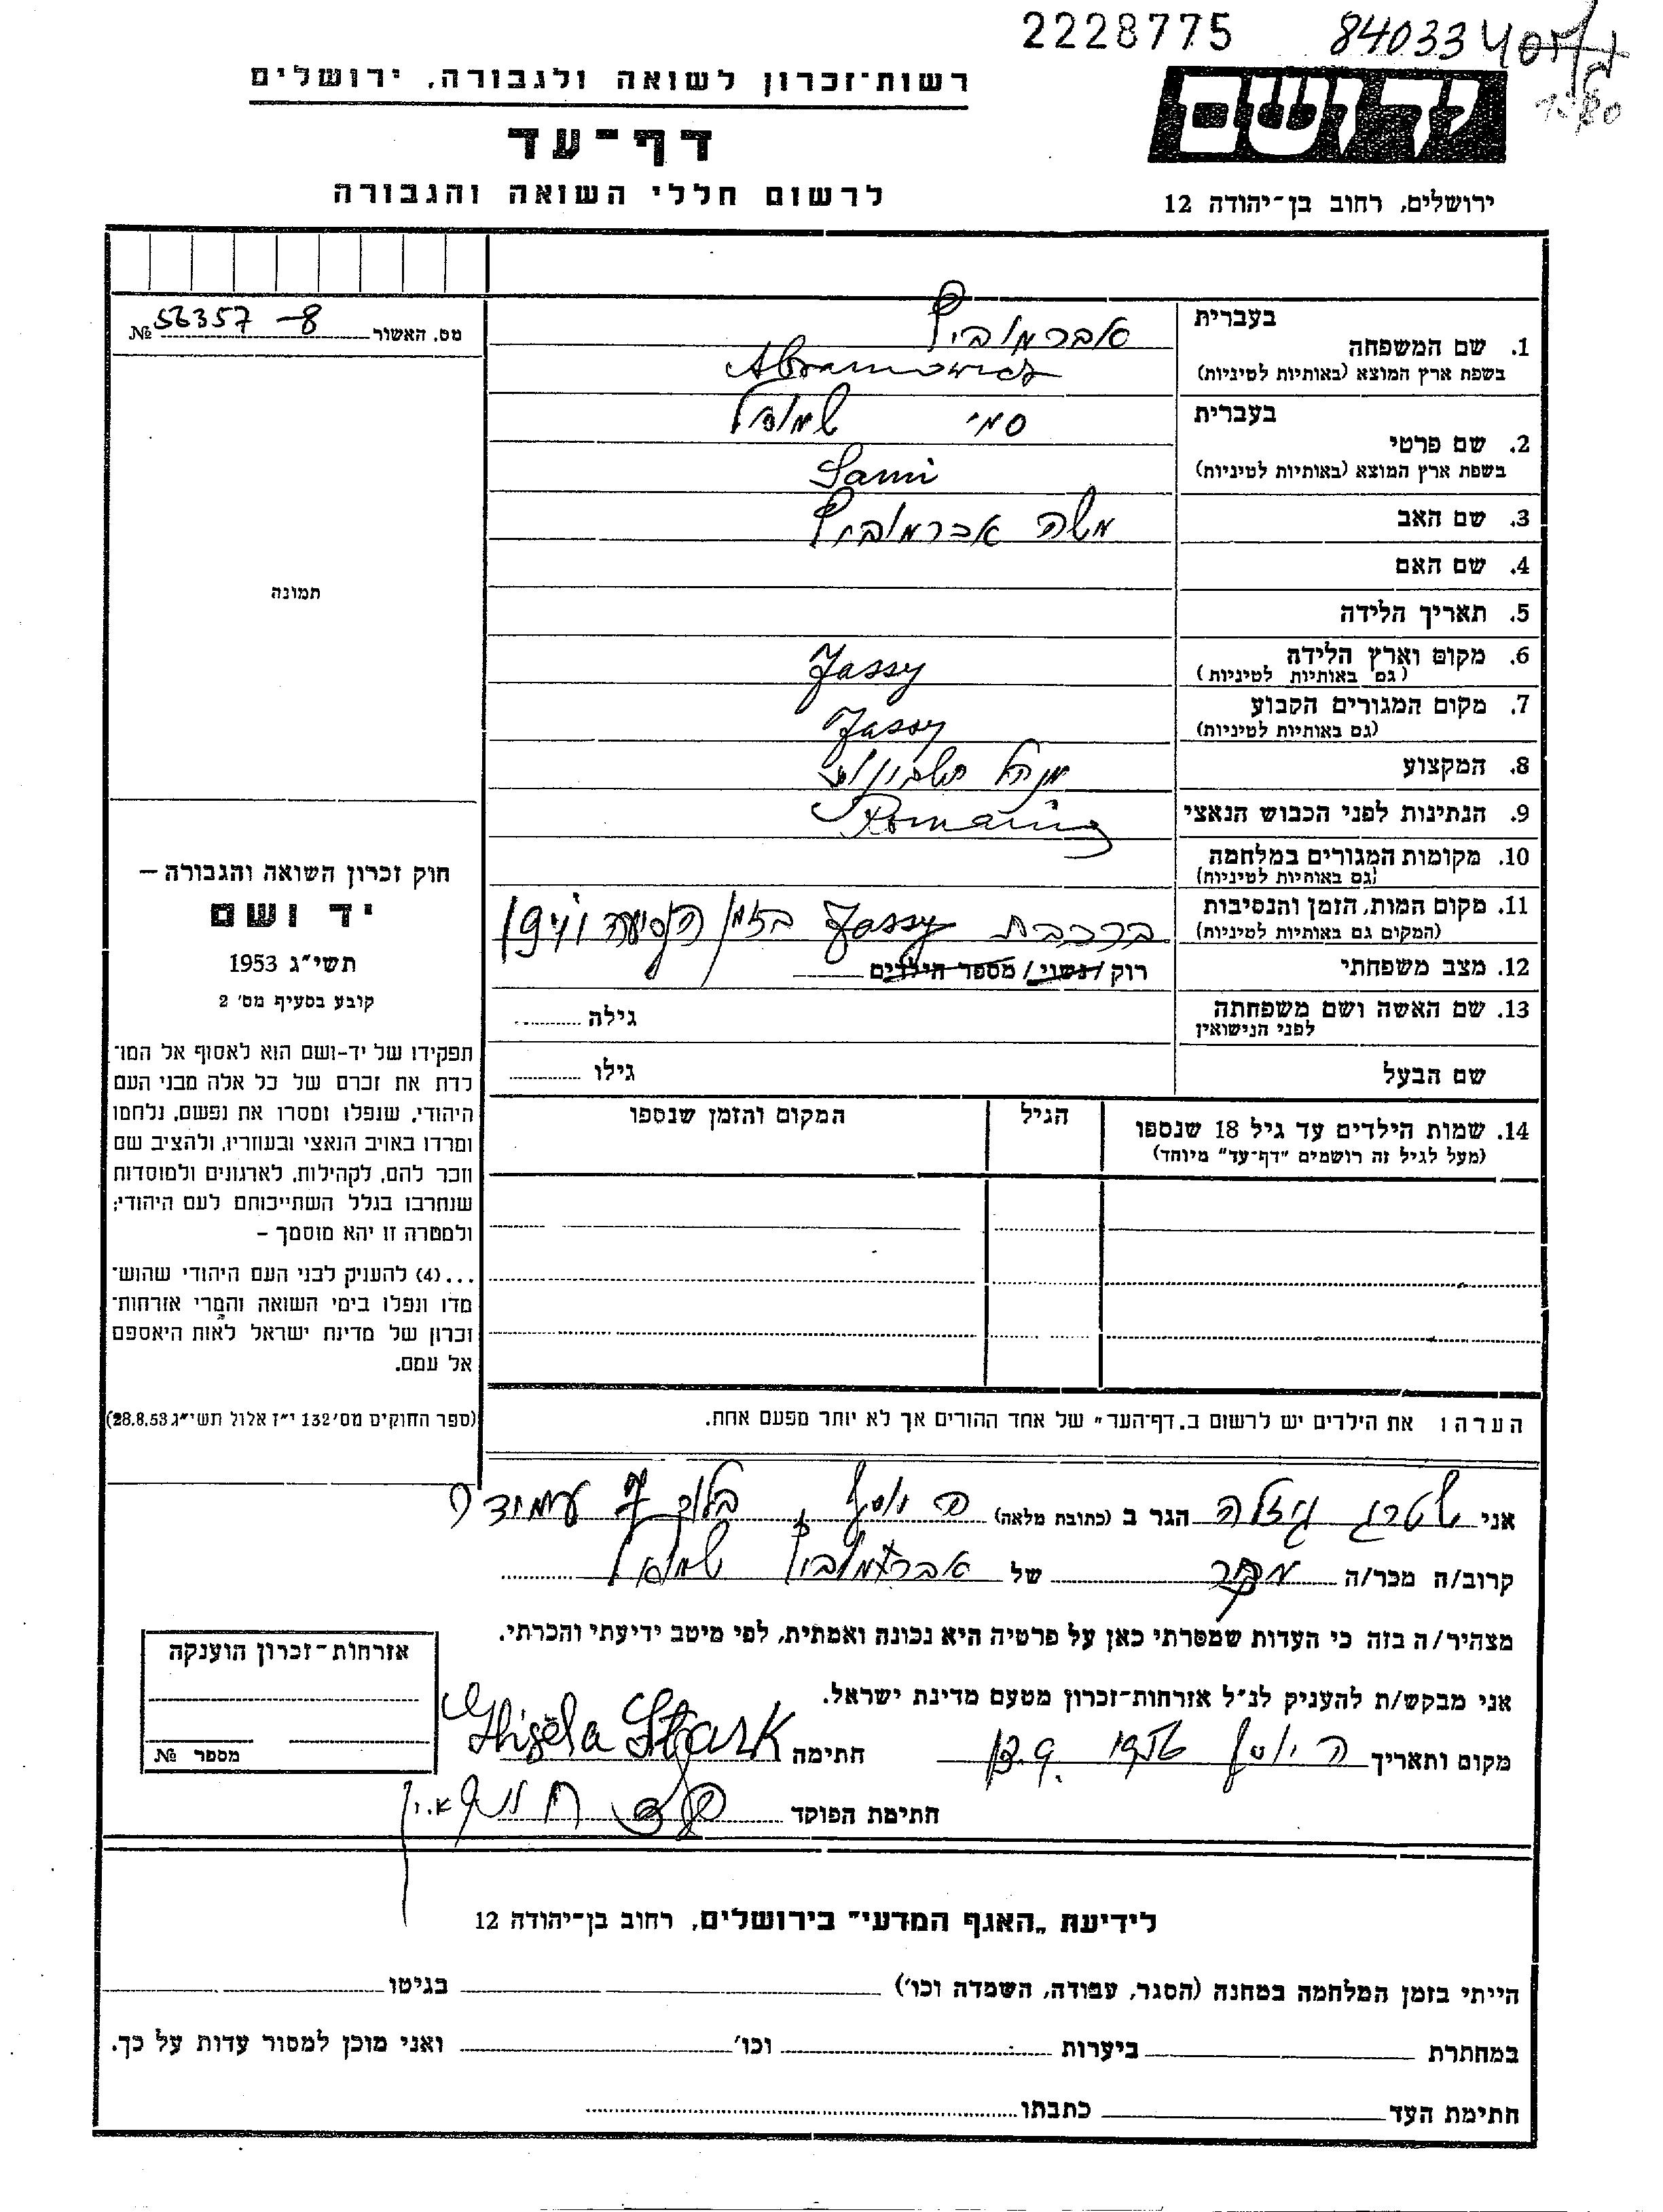 2228775 84033
רשות־זכרון לשואה ולגבורה, ירושלים
יד ושם
דף־עד
לרשום חללי השואה והגבורה
ירושלים, רחוב בן־יהודה 12
מס. האשור 8– 56357 №
1. שם המשפחה בעברית אברמוביץ
בשפת ארץ המוצא (באותיות לטיניות) Abramowicz
2. שם פרטי בעברית סמי שמואל
בשפת ארץ המוצא (באותיות לטיניות) Sami
3. שם האב משה אברמוביץ
4. שם האם
5. תאריך הלידה
6. מקום וארץ הלידה
(גם באותיות לטיניות) Jassy
7. מקום המגורים הקבוע
(גם באותיות לטיניות) Jassy
8. המקצוע מנהל חשבונות
9. הנתינות לפני הכבוש הנאצי
10. מקומות המגורים במלחמה
(גם באותיות לטיניות)
11. מקום המות, הזמן והנסיבות
(המקום גם באותיות לטיניות) ברכבת Jassy בזמן הנסיעה
12. מצב משפחתי רוק / נשוי / מספר הילדים
13. שם האשה ושם משפחתה
לפני הנישואין גילה
שם הבעל גילו
14. שמות הילדים עד גיל 18 שנספו הגיל המקום והזמן שנספו
(מעל לגיל זה רושמים "דף־עד" מיוחד)
תמונה
חוק זכרון השואה והגבורה –
יד ושם
תשי"ג 1953
קובע בסעיף מס' 2
תפקידו של יד-ושם הוא לאסוף אל המו־
לדת את זכרם של כל אלה מבני העם
היהודי, שנפלו ומסרו את נפשם, נלחמו
ומרדו באויב הנאצי ובעוזריו, ולהציב שם
וזכר להם, לקהילות, לארגונים ולמוסדות
שנחרבו בגלל השתייכותם לעם היהודי;
ולמטרה זו יהא מוסמך –
...(4) להעניק לבני העם היהודי שהוש־
מדו ונפלו בימי השואה והמרי אזרחות־
זכרון של מדינת ישראל לאות היאספם
אל עמם.
(ספר החוקים מס' 132 י"ז אלול תשי"ג 28.8.53)
הערה: את הילדים יש לרשום ב„דף־העד" של אחד ההורים אך לא יותר מפעם אחת.
אני שטרק גיזלה הגר ב (כתובת מלאה) בלוק עמידר
קרוב/ה מכר/ה מכר של אברמוביץ שמואל
מצהיר/ה בזה כי העדות שמסרתי כאן על פרטיה היא נכונה ואמתית, לפי מיטב ידיעתי והכרתי.
אני מבקש/ת להעניק לנ"ל אזרחות־זכרון מטעם מדינת ישראל.
מקום ותאריך חתימה Ghizela Stark
חתימת הפוקד
אזרחות־זכרון הוענקה
מספר №
לידיעת „האגף המדעי" בירושלים, רחוב בן־יהודה 12
הייתי בזמן המלחמה במחנה (הסגר, עבודה, השמדה וכו') בגיטו
במחתרת ביערות וכו' ואני מוכן למסור עדות על כך.
חתימת העד כתבתו